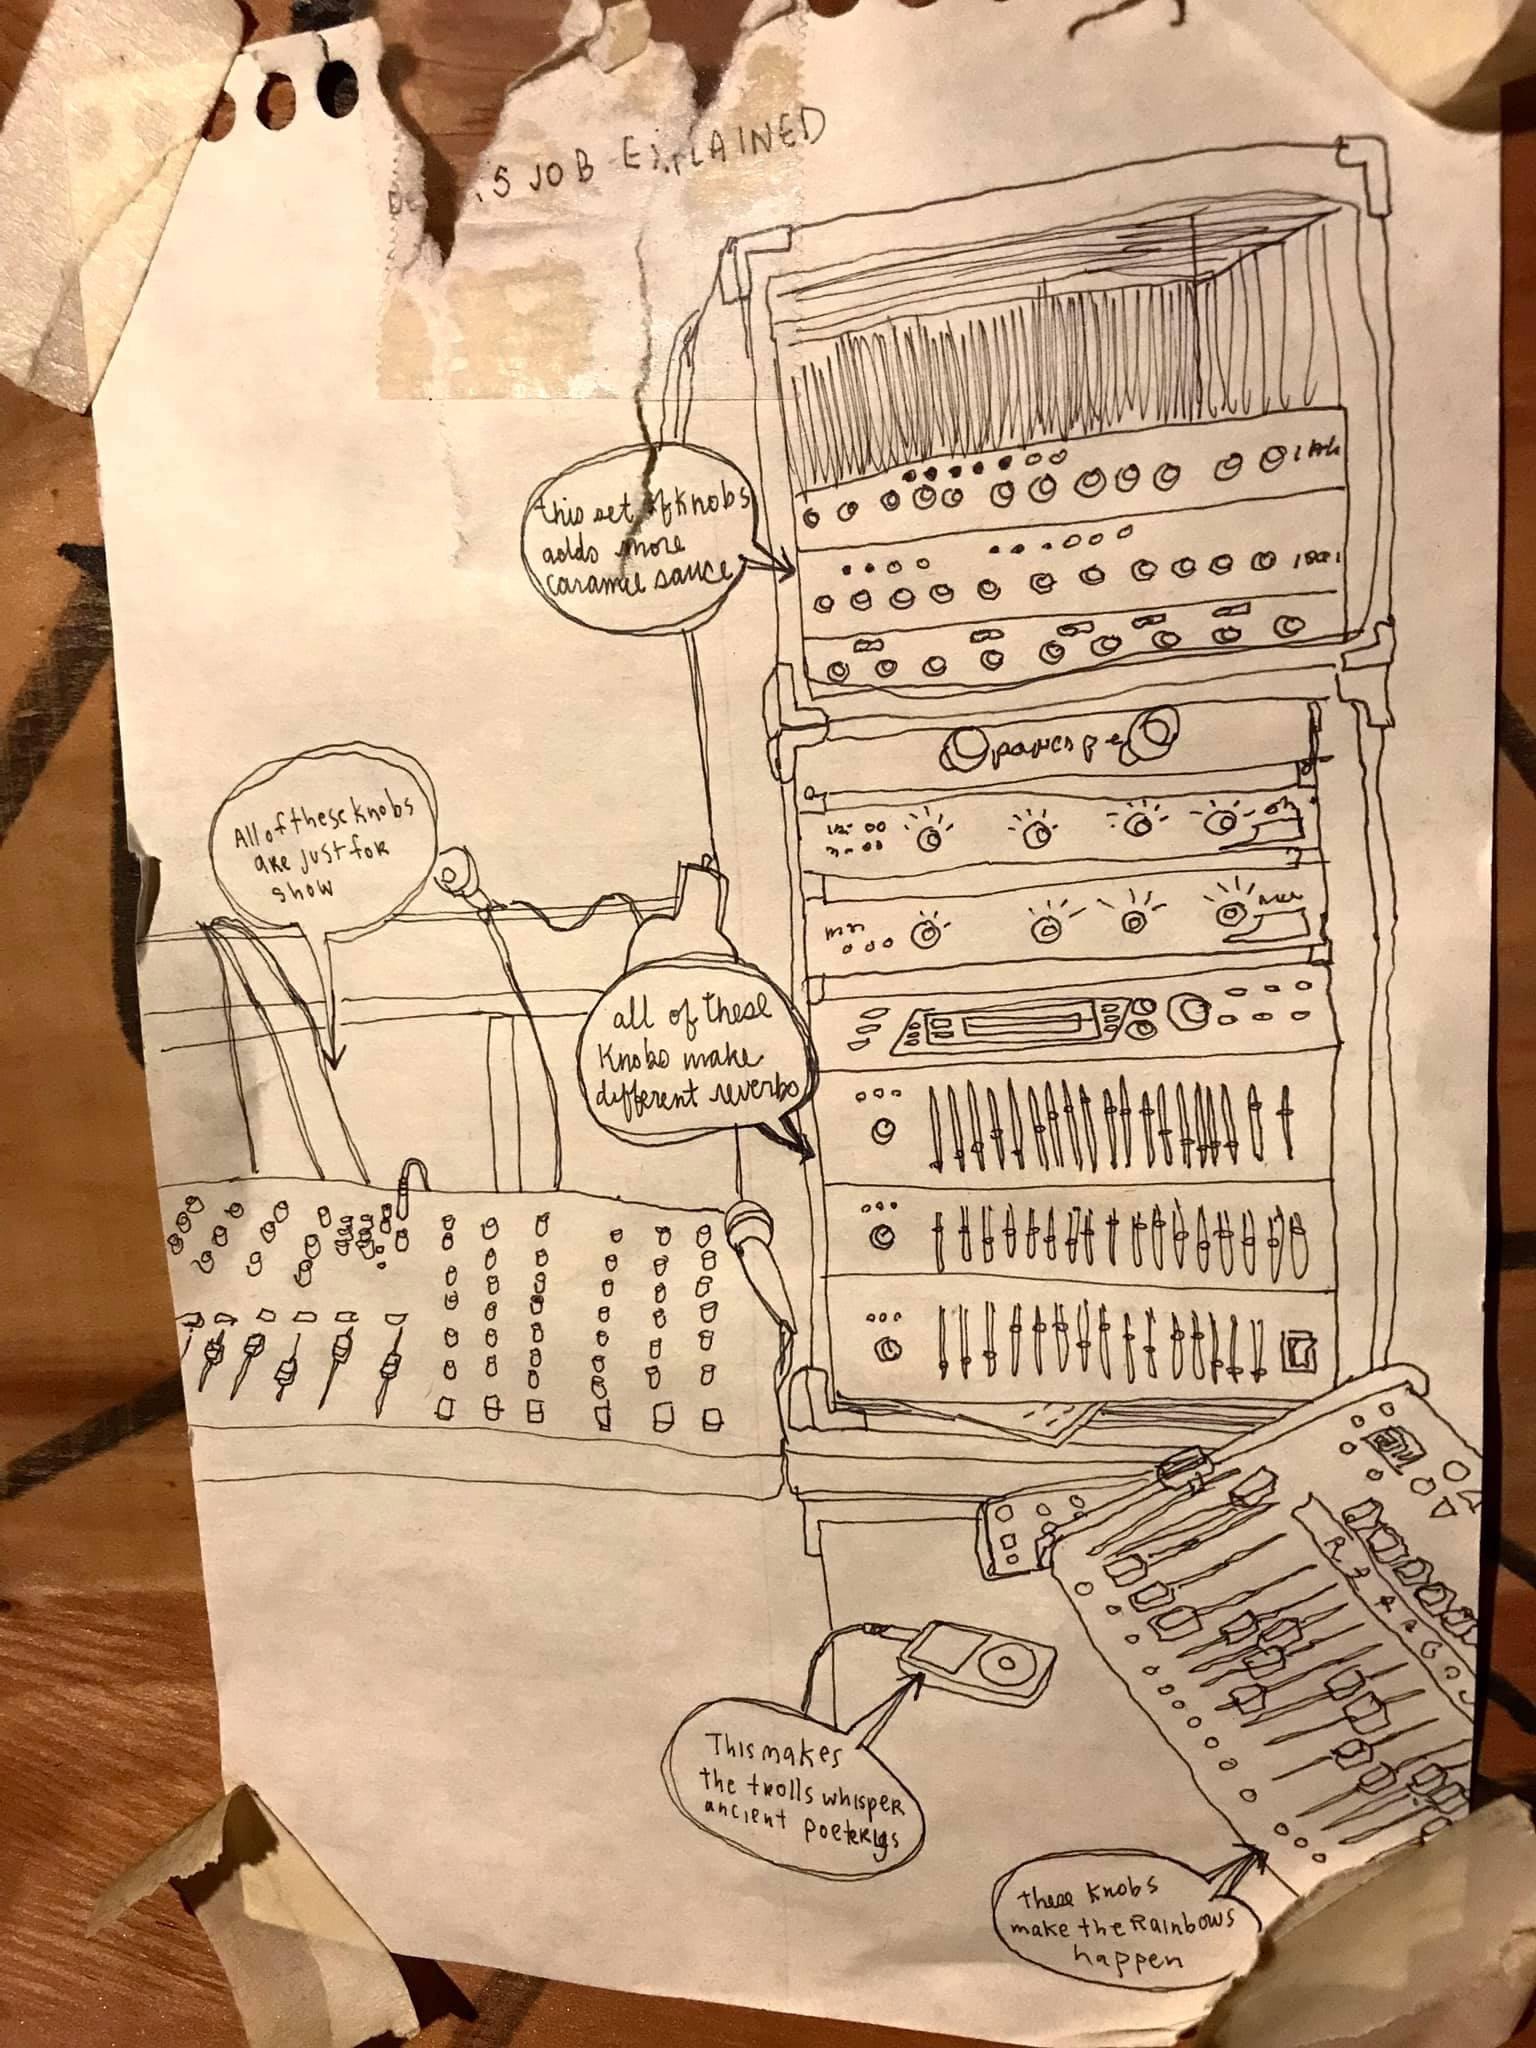 JOB EXPLAINED
this set of knobs
adds more
caramel sauce
All of these knobs
are just for
show
all of these
knobs make
different reverbs
This makes
the trolls whisper
ancient poeterys
these knobs
make the Rainbows
happen